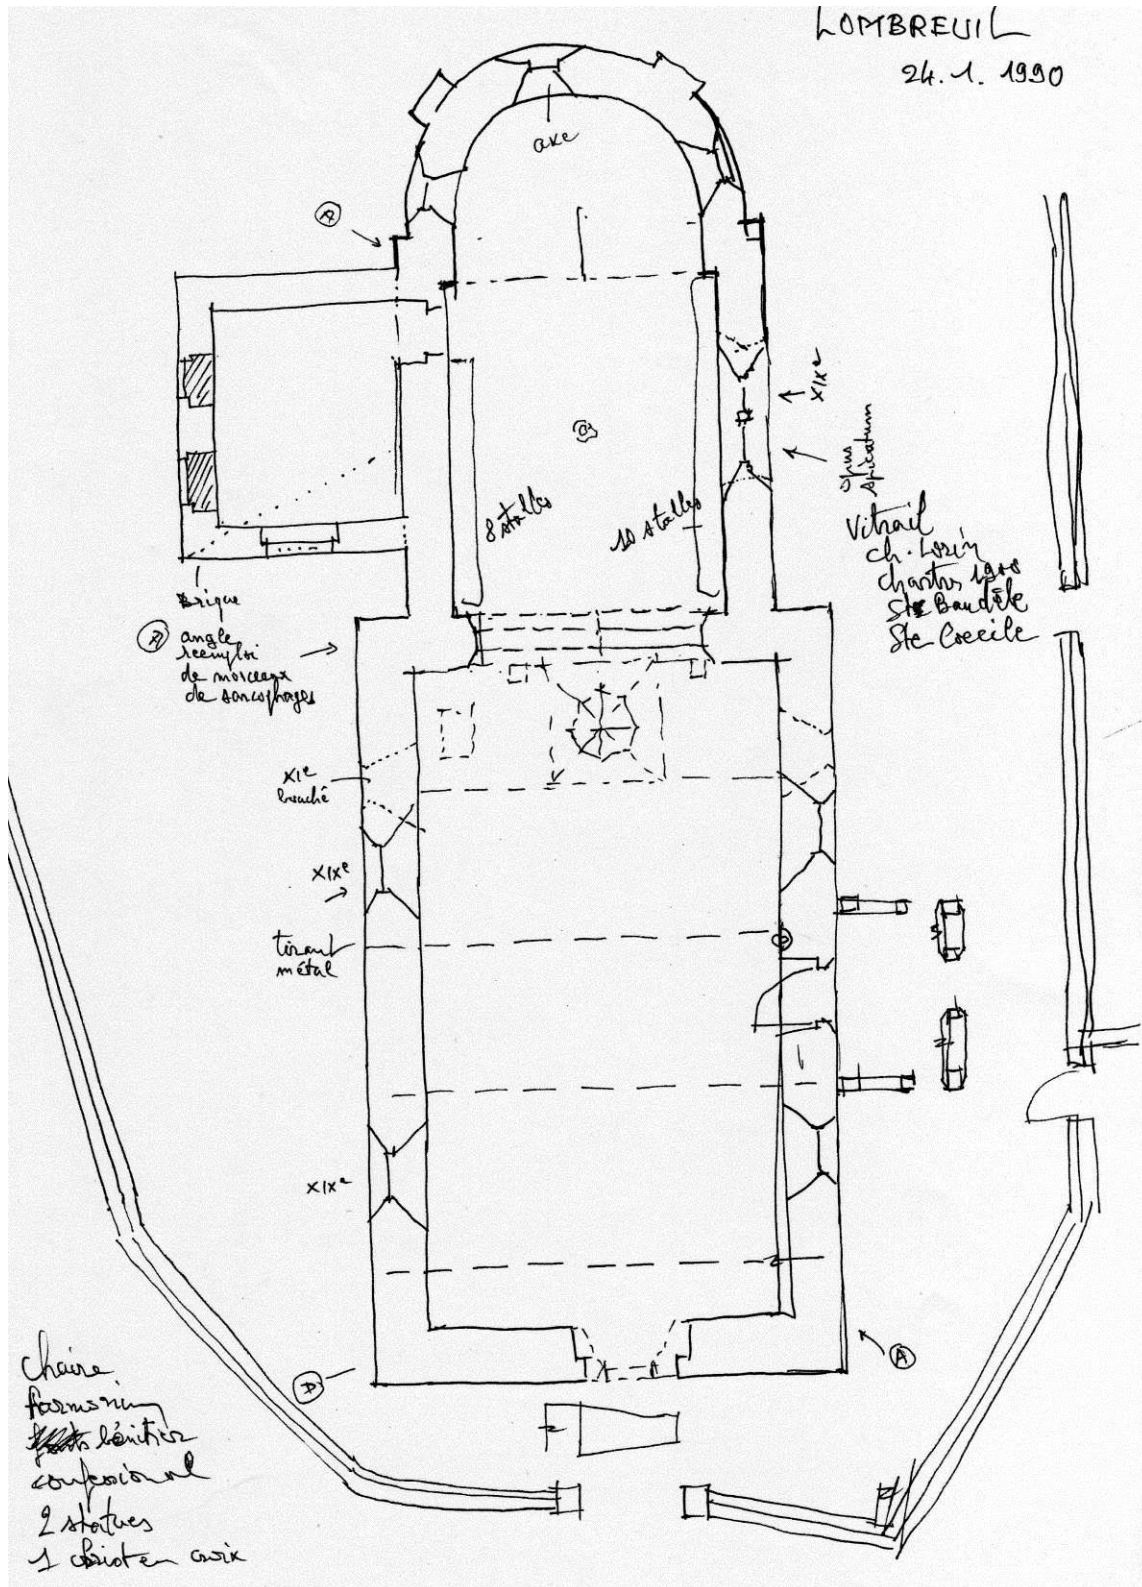 LOMBREUIL
24.1.1990
axe
A
XIXe
opus
spicatum
8 stalles
10 stalles
Vitrail
ch. Lorin
chartres 1900
Ste Baudile
Ste Cecile
Brique
angle
reemploi
de morceaux
de sarcophages
XIe
bouché
XIXe
tirant
métal
XIXe
A
D
chaire
harmonium
bénitier
confessional
2 statues
1 christ en croix